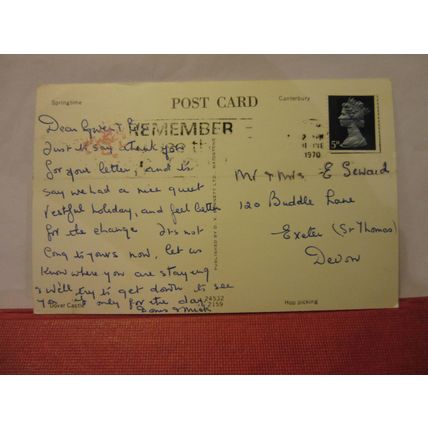 Springtime
POST CARD
Canterbury
REMEMBER
1970
5D
Dear Gwen & Eve
Just to say thank you
for your letter, and to
say we had a nice quiet
restful holiday, and feel better
for the change It's not
long to yours now, let us
know where you are staying
& we'll try to get down to see
you if only for the day
Doris & Mick
Mr & Mrs E Seward
120 Buddle Lane
Exeter (St Thomas)
Devon
Dover Castle
Hop picking